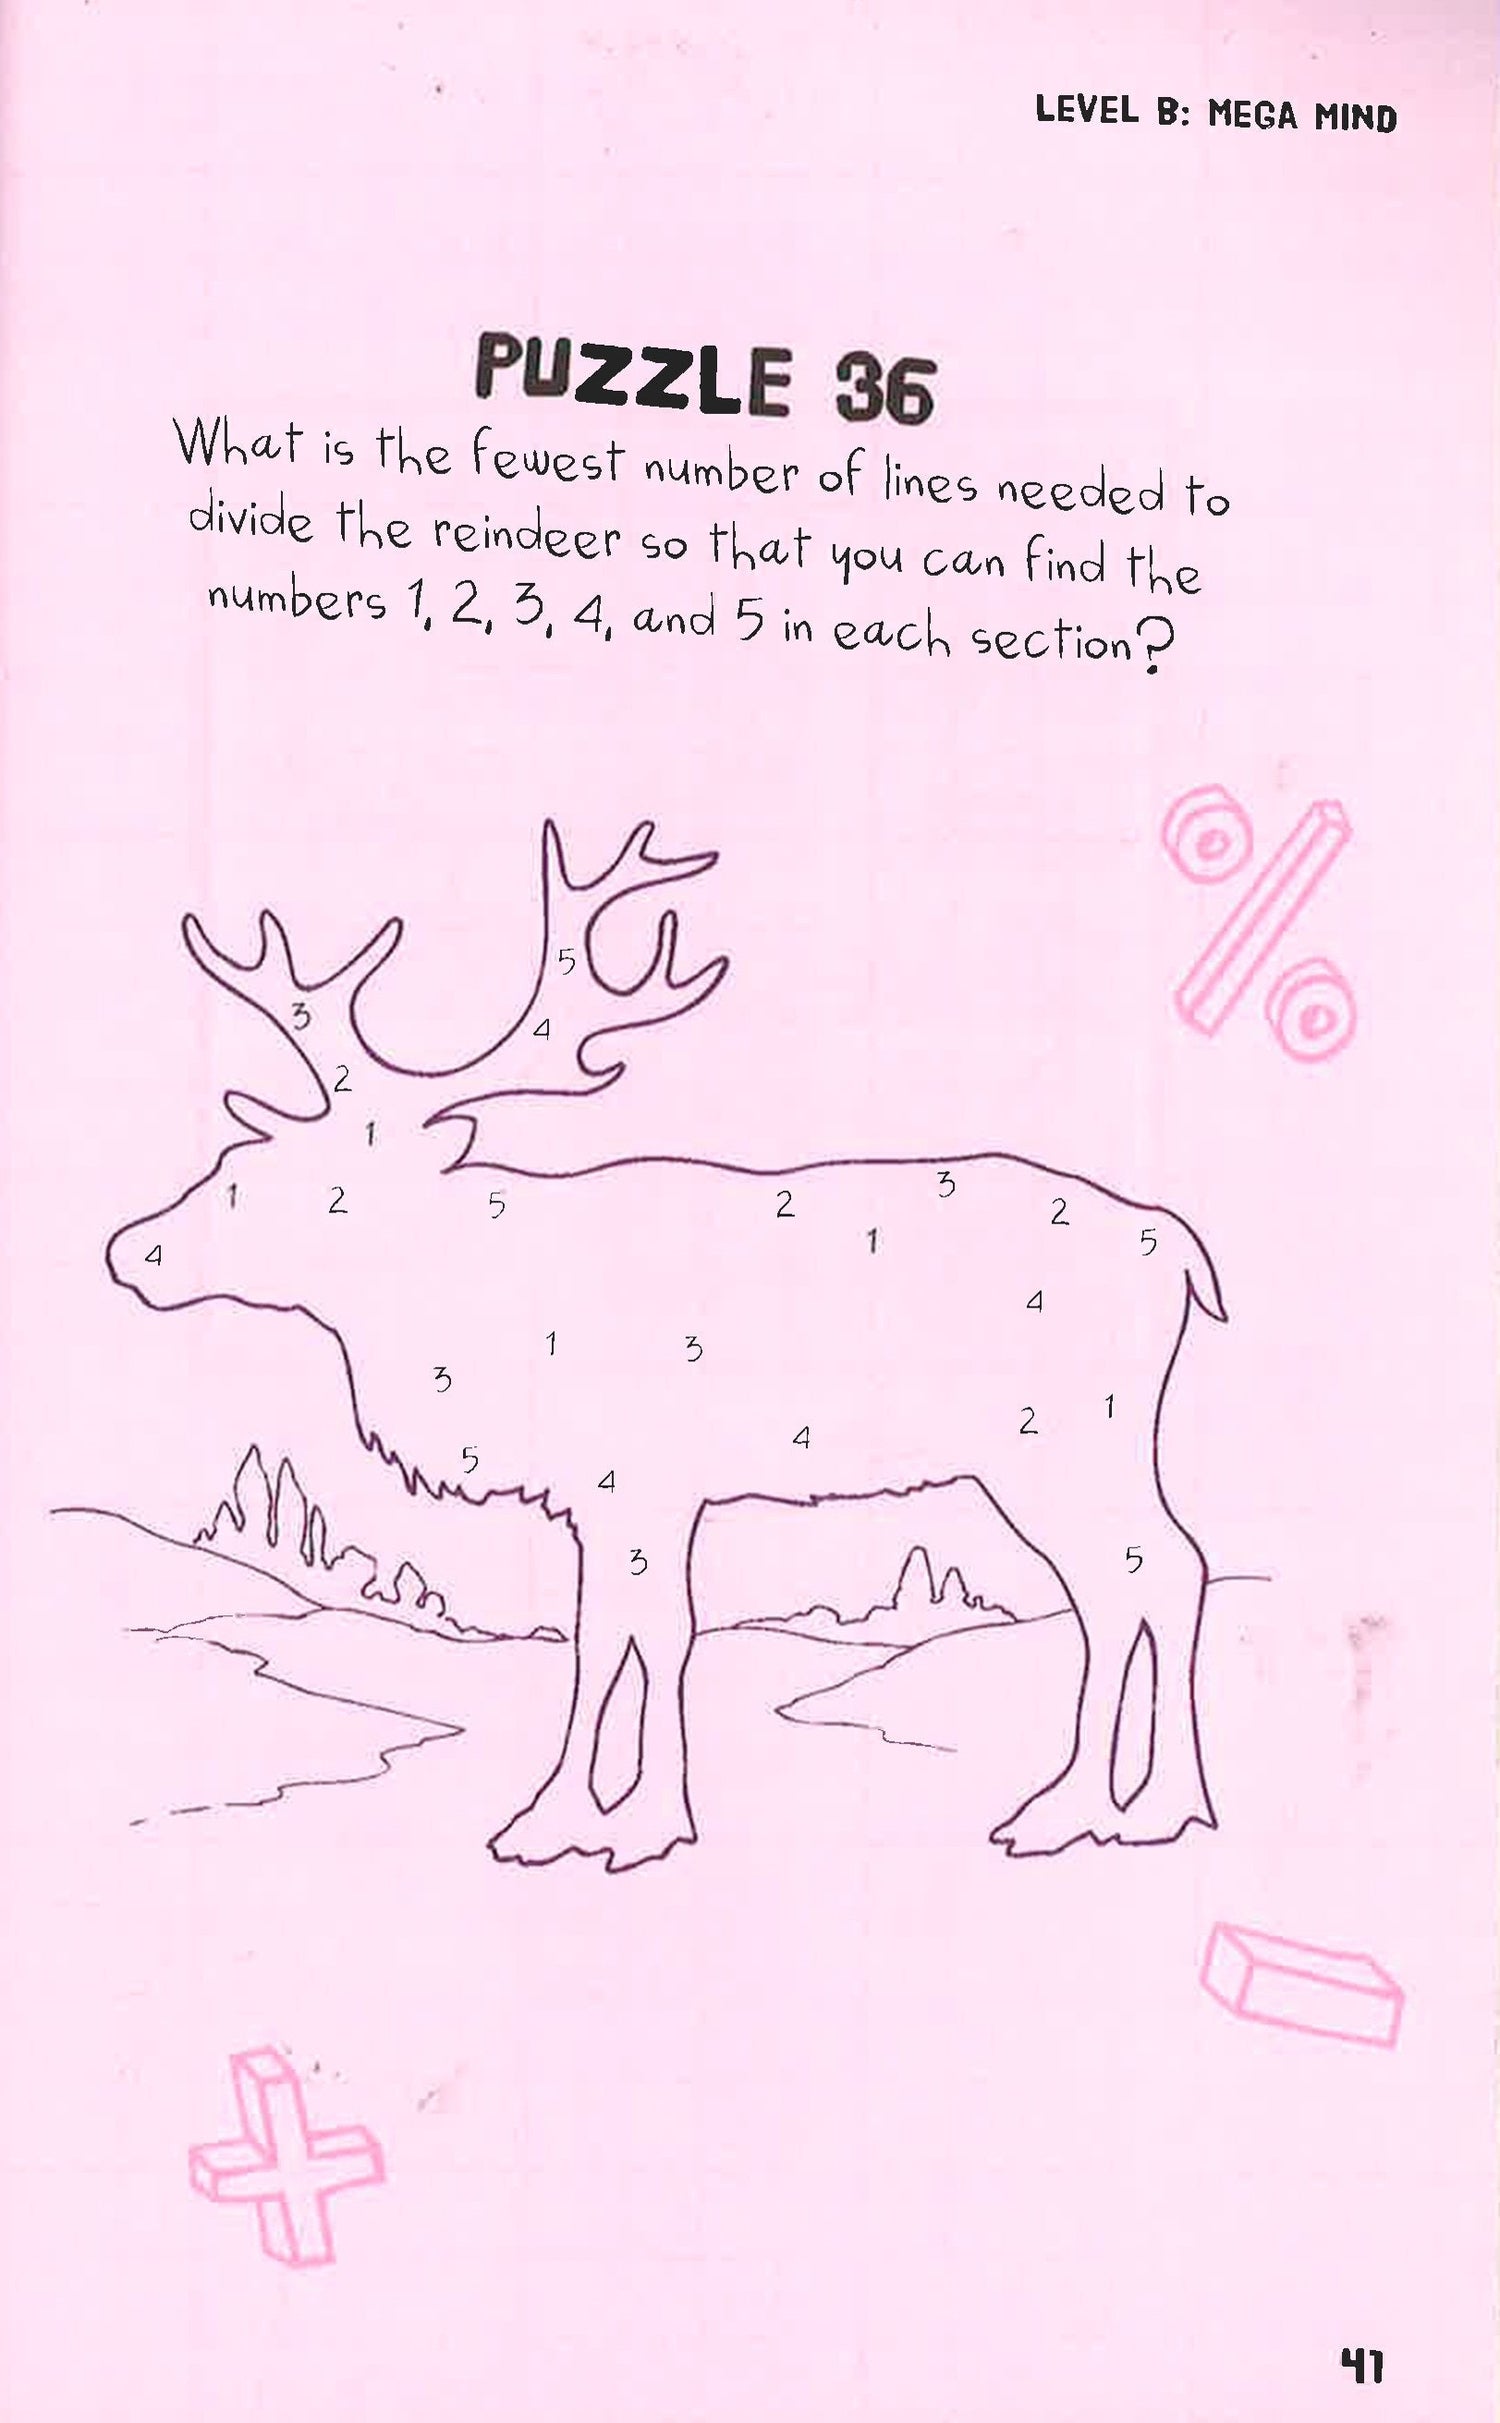 LEVEL B: MEGA MIND
PUZZLE 36
What is the fewest number of lines needed to
divide the reindeer so that you can find the
numbers 1, 2, 3, 4, and 5 in each section?
5
3
4
2
1
1 2 5 2 3 2
4 1 5
4
1 3
3 4 2 1
5 4
3 5
41